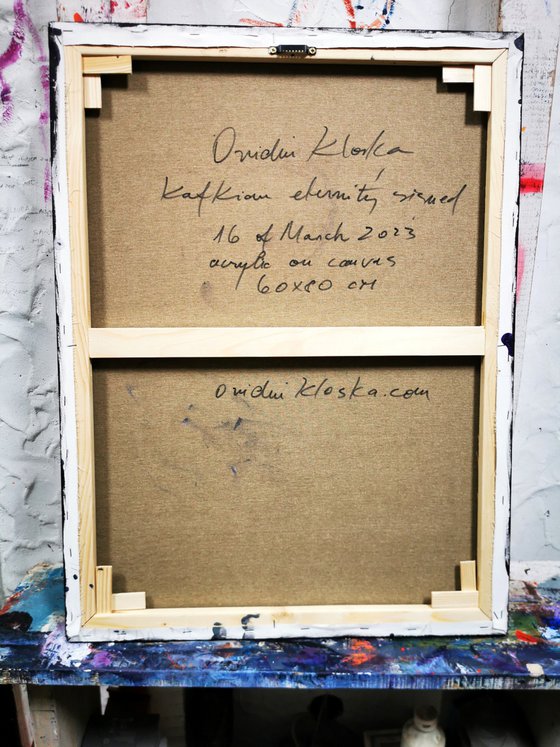 Ovidiu Kloska
Kafkian eternity, signed
16 of March 2023
acrylic on canvas
60x80 cm
ovidiu kloska.com